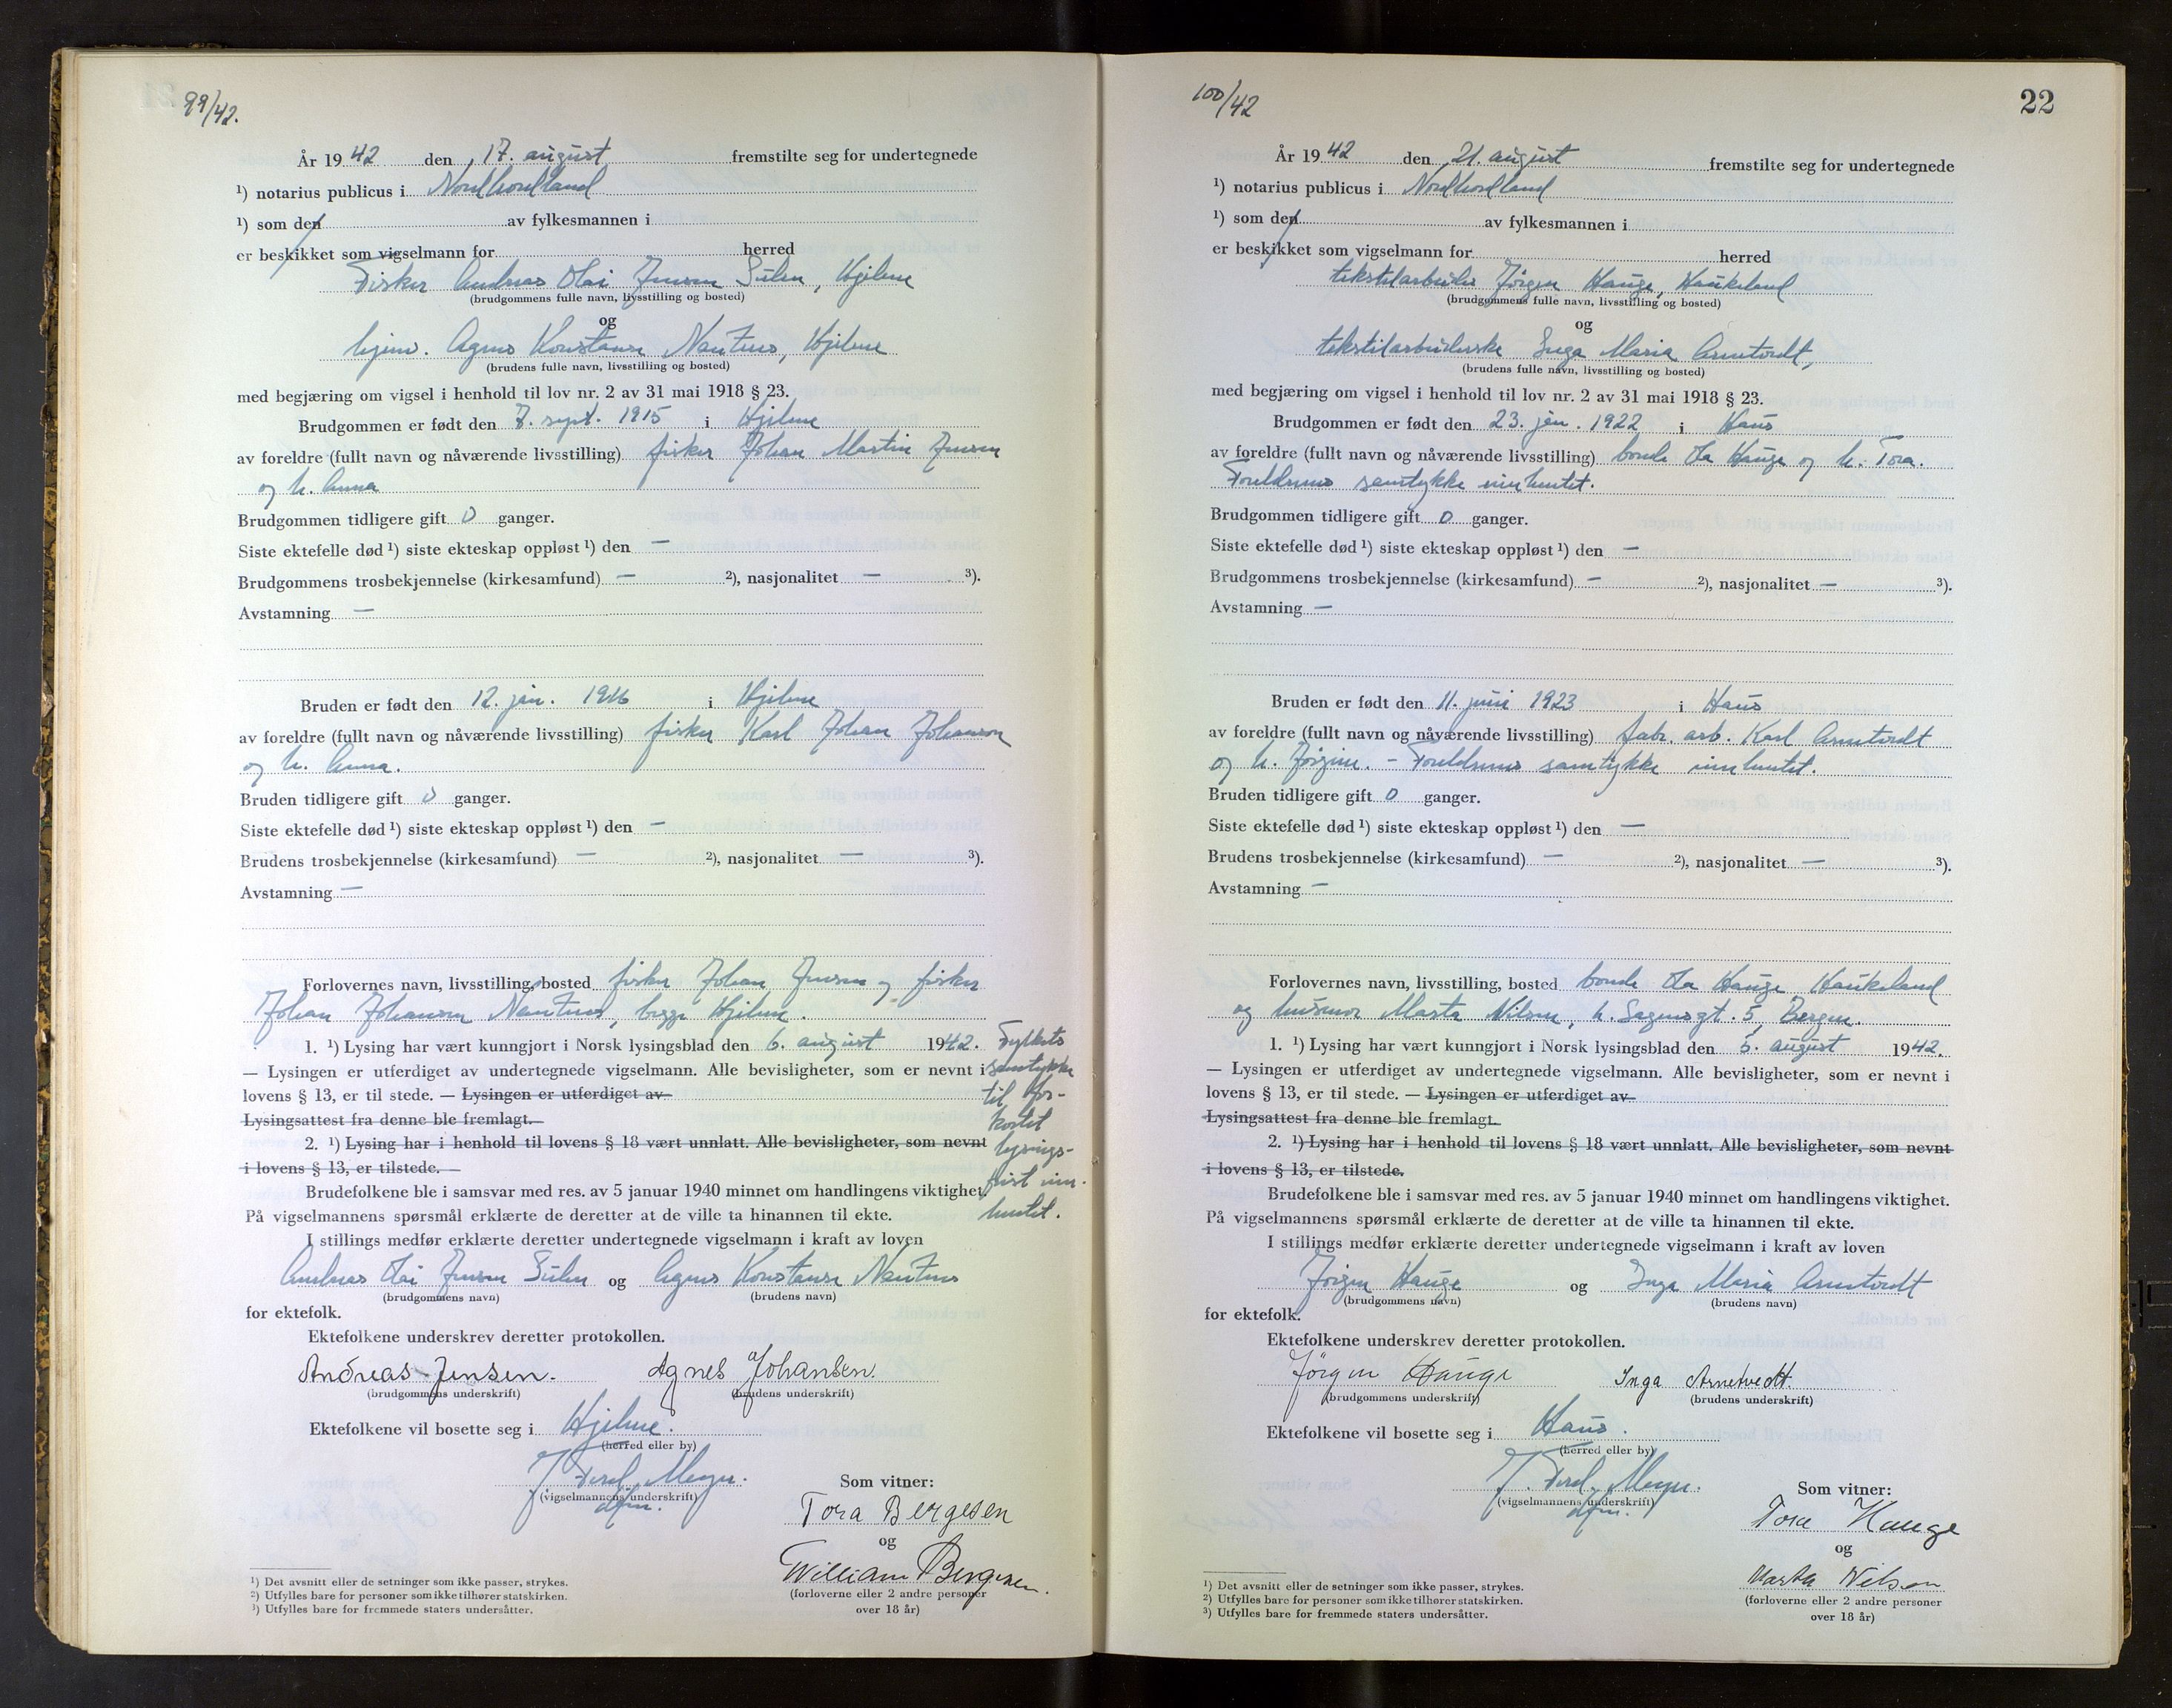 99/42.
År 1942 den 17. august fremstilte seg for undertegnede
¹) notarius publicus i Nordhordland
¹) som den av fylkesmannen i
er beskikket som vigselmann for herred
Fisker Andreas Olai Jensen Sulen, Hjelme
(brudgommens fulle navn, livsstilling og bosted)
og
hjem. Agnes Konstanse Nautnes, Hjelme
(brudens fulle navn, livsstilling og bosted)
med begjæring om vigsel i henhold til lov nr. 2 av 31 mai 1918 § 23.
Brudgommen er født den 7. sept. 1915 i Hjelme
av foreldre (fullt navn og nåværende livsstilling) fisker Johan Martin Jensen
og h. Anna
Brudgommen tidligere gift 0 ganger.
Siste ektefelle død ¹) siste ekteskap oppløst ¹) den —
Brudgommens trosbekjennelse (kirkesamfund) — ²), nasjonalitet — ³).
Avstamning —
Bruden er født den 12. jan. 1916 i Hjelme
av foreldre (fullt navn og nåværende livsstilling) fisker Karl Johan Johansen
og h. Anna.
Bruden tidligere gift 0 ganger.
Siste ektefelle død ¹) siste ekteskap oppløst ¹) den —
Brudens trosbekjennelse (kirkesamfund) — ²), nasjonalitet — ³).
Avstamning —
Forlovernes navn, livsstilling, bosted fisker Johan Jensen og fisker
Johan Johansen Nautnes, begge Hjelme.
1. ¹) Lysing har vært kunngjort i Norsk lysingsblad den 6. august 1942.
— Lysingen er utferdiget av undertegnede vigselmann. Alle bevisligheter, som er nevnt i
lovens § 13, er til stede. — Lysingen er utferdiget av
Lysingsattest fra denne ble fremlagt.
2. ¹) Lysing har i henhold til lovens § 18 vært unnlatt. Alle bevisligheter, som nevnt
i lovens § 13, er tilstede. —
Fylkets
samtykke
til for-
kortet
lysings-
frist inn-
hentet.
Brudefolkene ble i samsvar med res. av 5 januar 1940 minnet om handlingens viktighet.
På vigselmannens spørsmål erklærte de deretter at de ville ta hinannen til ekte.
I stillings medfør erklærte deretter undertegnede vigselmann i kraft av loven
Andreas Olai Jensen Sulen og Agnes Konstanse Nautnes
(brudgommens navn) (brudens navn)
for ektefolk.
Ektefolkene underskrev deretter protokollen.
Andreas Jensen. Agnes Johansen.
(brudgommens underskrift) (brudens underskrift)
Ektefolkene vil bosette seg i Hjelme.
(herred eller by)
J. Ferd. Meyer.
(vigselmannens underskrift)
dfm.
Som vitner:
Tora Bergesen
og
William Bergesen.
(forloverne eller 2 andre personer
over 18 år)
¹) Det avsnitt eller de setninger som ikke passer, strykes.
²) Utfylles bare for personer som ikke tilhører statskirken.
³) Utfylles bare for fremmede staters undersåtter.
100/42
22
År 1942 den 21. august fremstilte seg for undertegnede
¹) notarius publicus i Nordhordland
¹) som den av fylkesmannen i
er beskikket som vigselmann for herred
tekstilarbeider Jørgen Hauge, Haukeland
(brudgommens fulle navn, livsstilling og bosted)
og
tekstilarbeiderske Inga Maria Arnetvedt,
(brudens fulle navn, livsstilling og bosted)
med begjæring om vigsel i henhold til lov nr. 2 av 31 mai 1918 § 23.
Brudgommen er født den 23. jan. 1922 i Haus
av foreldre (fullt navn og nåværende livsstilling) bonde Ola Hauge og h. Tora.
Foreldrenes samtykke innhentet.
Brudgommen tidligere gift 0 ganger.
Siste ektefelle død ¹) siste ekteskap oppløst ¹) den —
Brudgommens trosbekjennelse (kirkesamfund) — ²), nasjonalitet — ³).
Avstamning —
Bruden er født den 11. juni 1923 i Haus
av foreldre (fullt navn og nåværende livsstilling) fabr. arb. Karl Arnetvedt
og h. Jørgine. - Foreldrenes samtykke innhentet.
Bruden tidligere gift 0 ganger.
Siste ektefelle død ¹) siste ekteskap oppløst ¹) den —
Brudens trosbekjennelse (kirkesamfund) — ²), nasjonalitet — ³).
Avstamning —
Forlovernes navn, livsstilling, bosted bonde Ola Hauge Haukeland
og husmor Marta Nilsen, h. Sagensgt. 5, Bergen.
1. ¹) Lysing har vært kunngjort i Norsk lysingsblad den 5. august 1942.
— Lysingen er utferdiget av undertegnede vigselmann. Alle bevisligheter, som er nevnt i
lovens § 13, er til stede. — Lysingen er utferdiget av
Lysingsattest fra denne ble fremlagt.
2. ¹) Lysing har i henhold til lovens § 18 vært unnlatt. Alle bevisligheter, som nevnt
i lovens § 13, er tilstede.
Brudefolkene ble i samsvar med res. av 5 januar 1940 minnet om handlingens viktighet.
På vigselmannens spørsmål erklærte de deretter at de ville ta hinannen til ekte.
I stillings medfør erklærte deretter undertegnede vigselmann i kraft av loven
Jørgen Hauge og Inga Maria Arnetvedt
(brudgommens navn) (brudens navn)
for ektefolk.
Ektefolkene underskrev deretter protokollen.
Jörgen Hauge Inga Arnetvedt.
(brudgommens underskrift) (brudens underskrift)
Ektefolkene vil bosette seg i Haus.
(herred eller by)
J. Ferd. Meyer.
(vigselmannens underskrift)
dfm.
Som vitner:
Tora Hauge
og
Marta Nilsen
(forloverne eller 2 andre personer
over 18 år)
¹) Det avsnitt eller de setninger som ikke passer, strykes.
²) Utfylles bare for personer som ikke tilhører statskirken.
³) Utfylles bare for fremmede staters undersåtter.